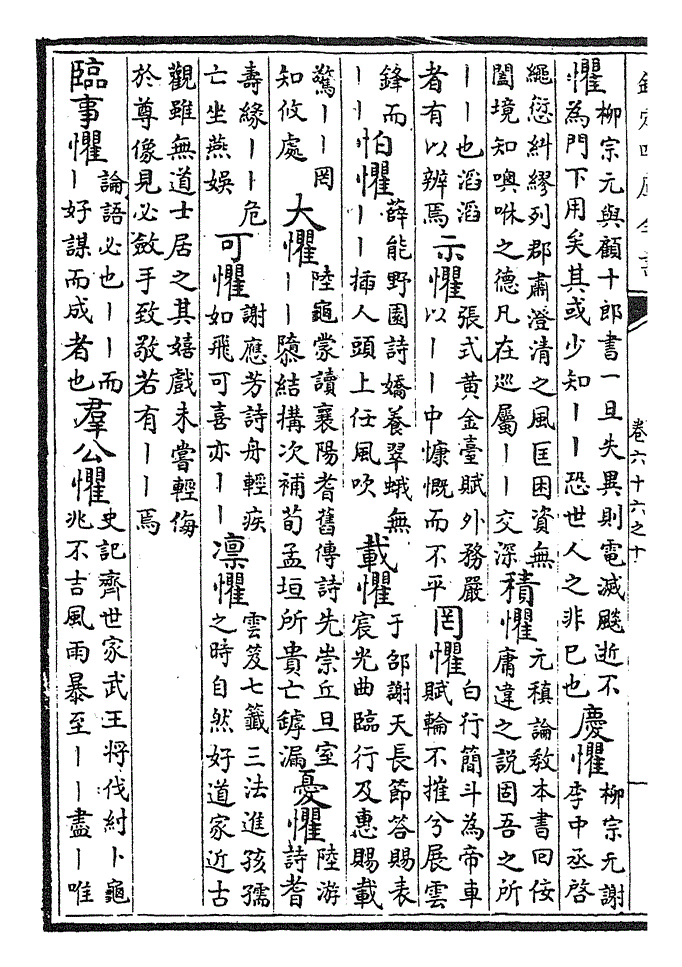 欽定四庫全書
卷六十六之十
懼
柳宗元與顧十郎書一旦失異則電滅颷逝不
為門下用矣其或少知丨丨恐世人之非已也
慶懼
柳宗元謝
李中丞啓
繩愆糾繆列郡肅澄清之風匡困資無
闔境知噢咻之德凡在巡屬丨丨交深
積懼
元稹論教本書曰佞
庸違之説固吾之所
丨丨也滔滔
者有以辨焉
示懼
張式黄金臺賦外務嚴
以丨丨中慷慨而不平
罔懼
白行簡斗為帝車
賦輪不摧兮展雲
鋒而
丨丨
怕懼
薛能野園詩嬌養翠蛾無
丨丨插人頭上任風吹
載懼
于邵謝天長節答賜表
宸光曲臨行及惠賜載
驚丨丨罔
知攸處
大懼
陸龜蒙讀襄陽耆舊傳詩先崇丘旦室
丨丨隳結構次補荀孟垣所貴亡罅漏
憂懼
陸游
詩耆
壽緣丨丨危
亡坐燕娯
可懼
謝應芳詩舟輕疾
如飛可喜亦丨丨
凛懼
雲笈七籤三法進孩孺
之時自然好道家近古
觀雖無道士居之其嬉戲未嘗輕侮
於尊像見必斂手致敬若有丨丨焉
臨事懼
論語必也丨丨而
丨好謀而成者也
羣公懼
史記齊世家武王将伐紂卜龜
兆不吉風雨暴至丨丨盡丨唯